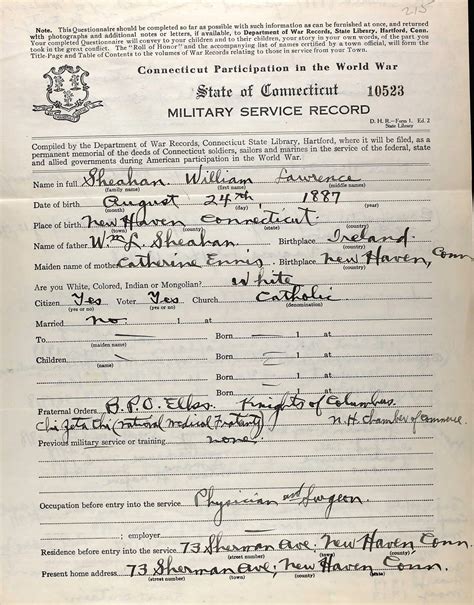 215
Note. This Questionnaire should be completed so far as possible with such information as can be furnished at once, and returned
with photographs and additional notes or letters, if available, to Department of War Records, State Library, Hartford, Conn.
Your completed Questionnaire will convey to your children and to their children, your story in your own words, of the part you
took in the great conflict. The "Roll of Honor" and the accompanying list of names certified by a town official, will form the
Title-Page and Table of Contents to the volumes of War Records relating to those in service from that town.
Connecticut Participation in the World War
State of Connecticut 10523
MILITARY SERVICE RECORD
D. H. R.—Form 1. Ed. 2
State Library
Compiled by the Department of War Records, Connecticut State Library, Hartford, where it will be filed, as a
permanent memorial of the deeds of Connecticut soldiers, sailors and marines in the service of the federal, state
and allied governments during American participation in the World War.
Name in full Sheahan William Lawrence
(family name) (first name) (middle names)
Date of birth August 24th, 1887
(month) (day) (year)
Place of birth New Haven Connecticut
(town) (county) (state) (country)
Name of father Wm L. Sheahan Birthplace Ireland
(country)
Maiden name of mother Catherine Ennis Birthplace New Haven, Conn
(country)
Are you White, Colored, Indian or Mongolian? White
Citizen Yes Voter Yes Church Catholic
(yes or no) (yes or no) (denomination)
Married no 1 at
To Born 1 at
(maiden name)
Children Born 1 at
(name)
Born 1 at
Fraternal Orders B.P.O. Elks. Knights of Columbus
Chi Zeta Chi (national medical Fraternity) N.H. Chamber of Commerce
Previous military service or training none
Occupation before entry into the service Physician and Surgeon.
; employer
Residence before entry into the service 73 Sherman Ave. New Haven Conn.
(street number) (town) (county) (state)
Present home address 73 Sherman Ave; New Haven Conn.
(street number) (town) (county) (state)